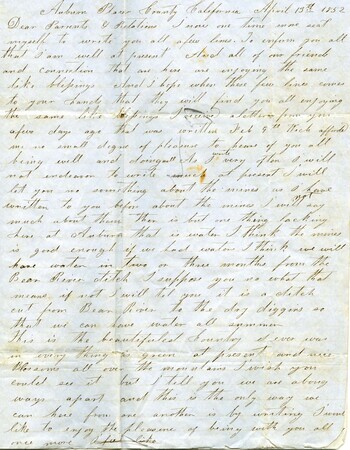 Auburn Placer County California April 13th 1852
Dear Parents & Relations I now one time more seat
myself to write you all a few lines. To inform you all
that I am well at present And all of our friends
and connection that are here are enjoying the same
like blessings And I hope when these few lines comes
to your hands that they will find you all enjoying
the same like blessings I received a letter from you
a few days ago that was written Feb 8th Wich affords
me no small degre of pleasure to hear of you all
being well and doing well As I very often I will
not endeavor to write much at present I will
let you no something about the mines as I have
written to you before about the mines I will say
much about them there is but one thing lacking
here at Auburn that is water I think the mines
is good enough if we had water I think we will
have water in two or three months from the
Bear River ditch I suppose you no what that
means if not I will tell you it is a ditch
cut from Bear River to the dry diggins so
that we can have water all summer
this is the beautifulest Country I ever was
in every thing is green at present and
blossoms all over the mountains I wish you
could see it but I tell you we are along
ways apart and this is the only way we
can hear from one another is by writing I would
like to enjoy the pleasure of being with you all
once more